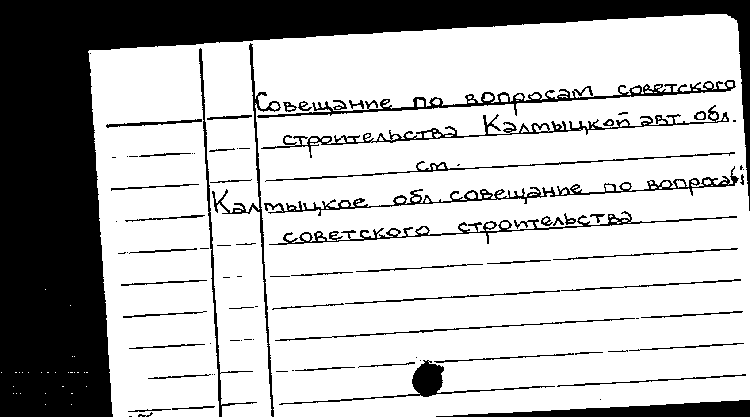 Совещание по вопросам советского
строительства Калмыцкой авт. обл.
см.
Калмыцкое обл. совещание по вопросам
советского строительства